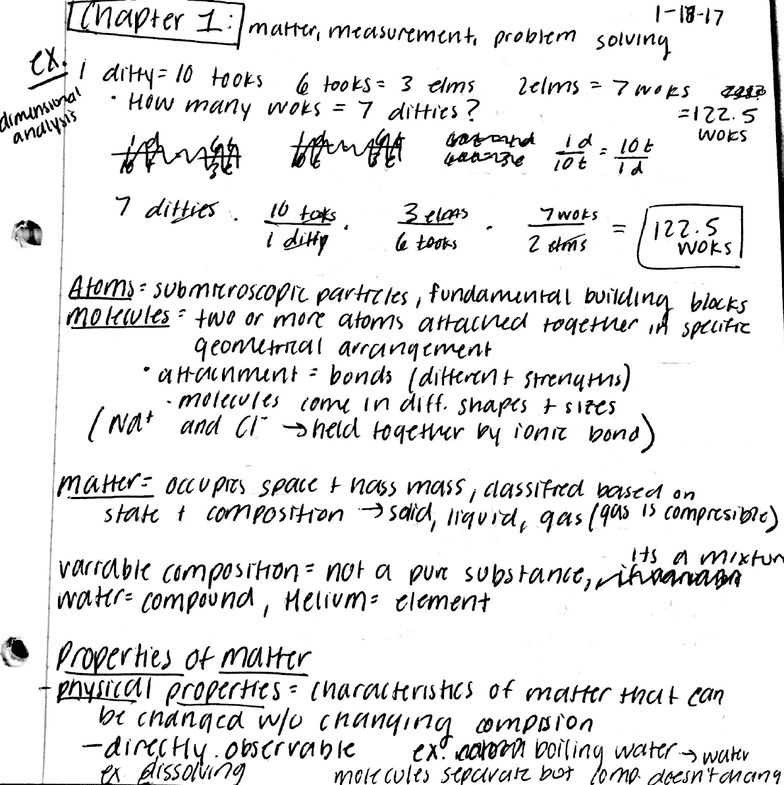 Chapter 1: matter, measurement, problem solving
1-18-17
ex.
dimensional
analysis
1 ditty = 10 tooks   6 tooks = 3 elms   2 elms = 7 woks
• How many woks = 7 ditties?
= 122.5
woks
1d/10t = 10t/1d
7 ditties · 10 tooks/1 ditty · 3 elms/6 tooks · 7 woks/2 elms = 122.5 woks
Atoms = submicroscopic particles, fundamental building blocks
molecules = two or more atoms attached together in specific
geometrical arrangement
• attainment = bonds (different strengths)
• molecules come in diff. shapes + sizes
(Na+ and Cl- → held together by ionic bond)
matter = occupies space + hass mass, classified based on
state + composition → solid, liquid, gas (gas is compresible)
variable composition = not a pure substance, its a mixtur
water = compound, Helium = element
Properties of matter
- physical properties = characteristics of matter that can
be changed w/o changing compsion
- directly observable   ex. boiling water → water
ex. dissolving   molecules separate but comp. doesn't chang